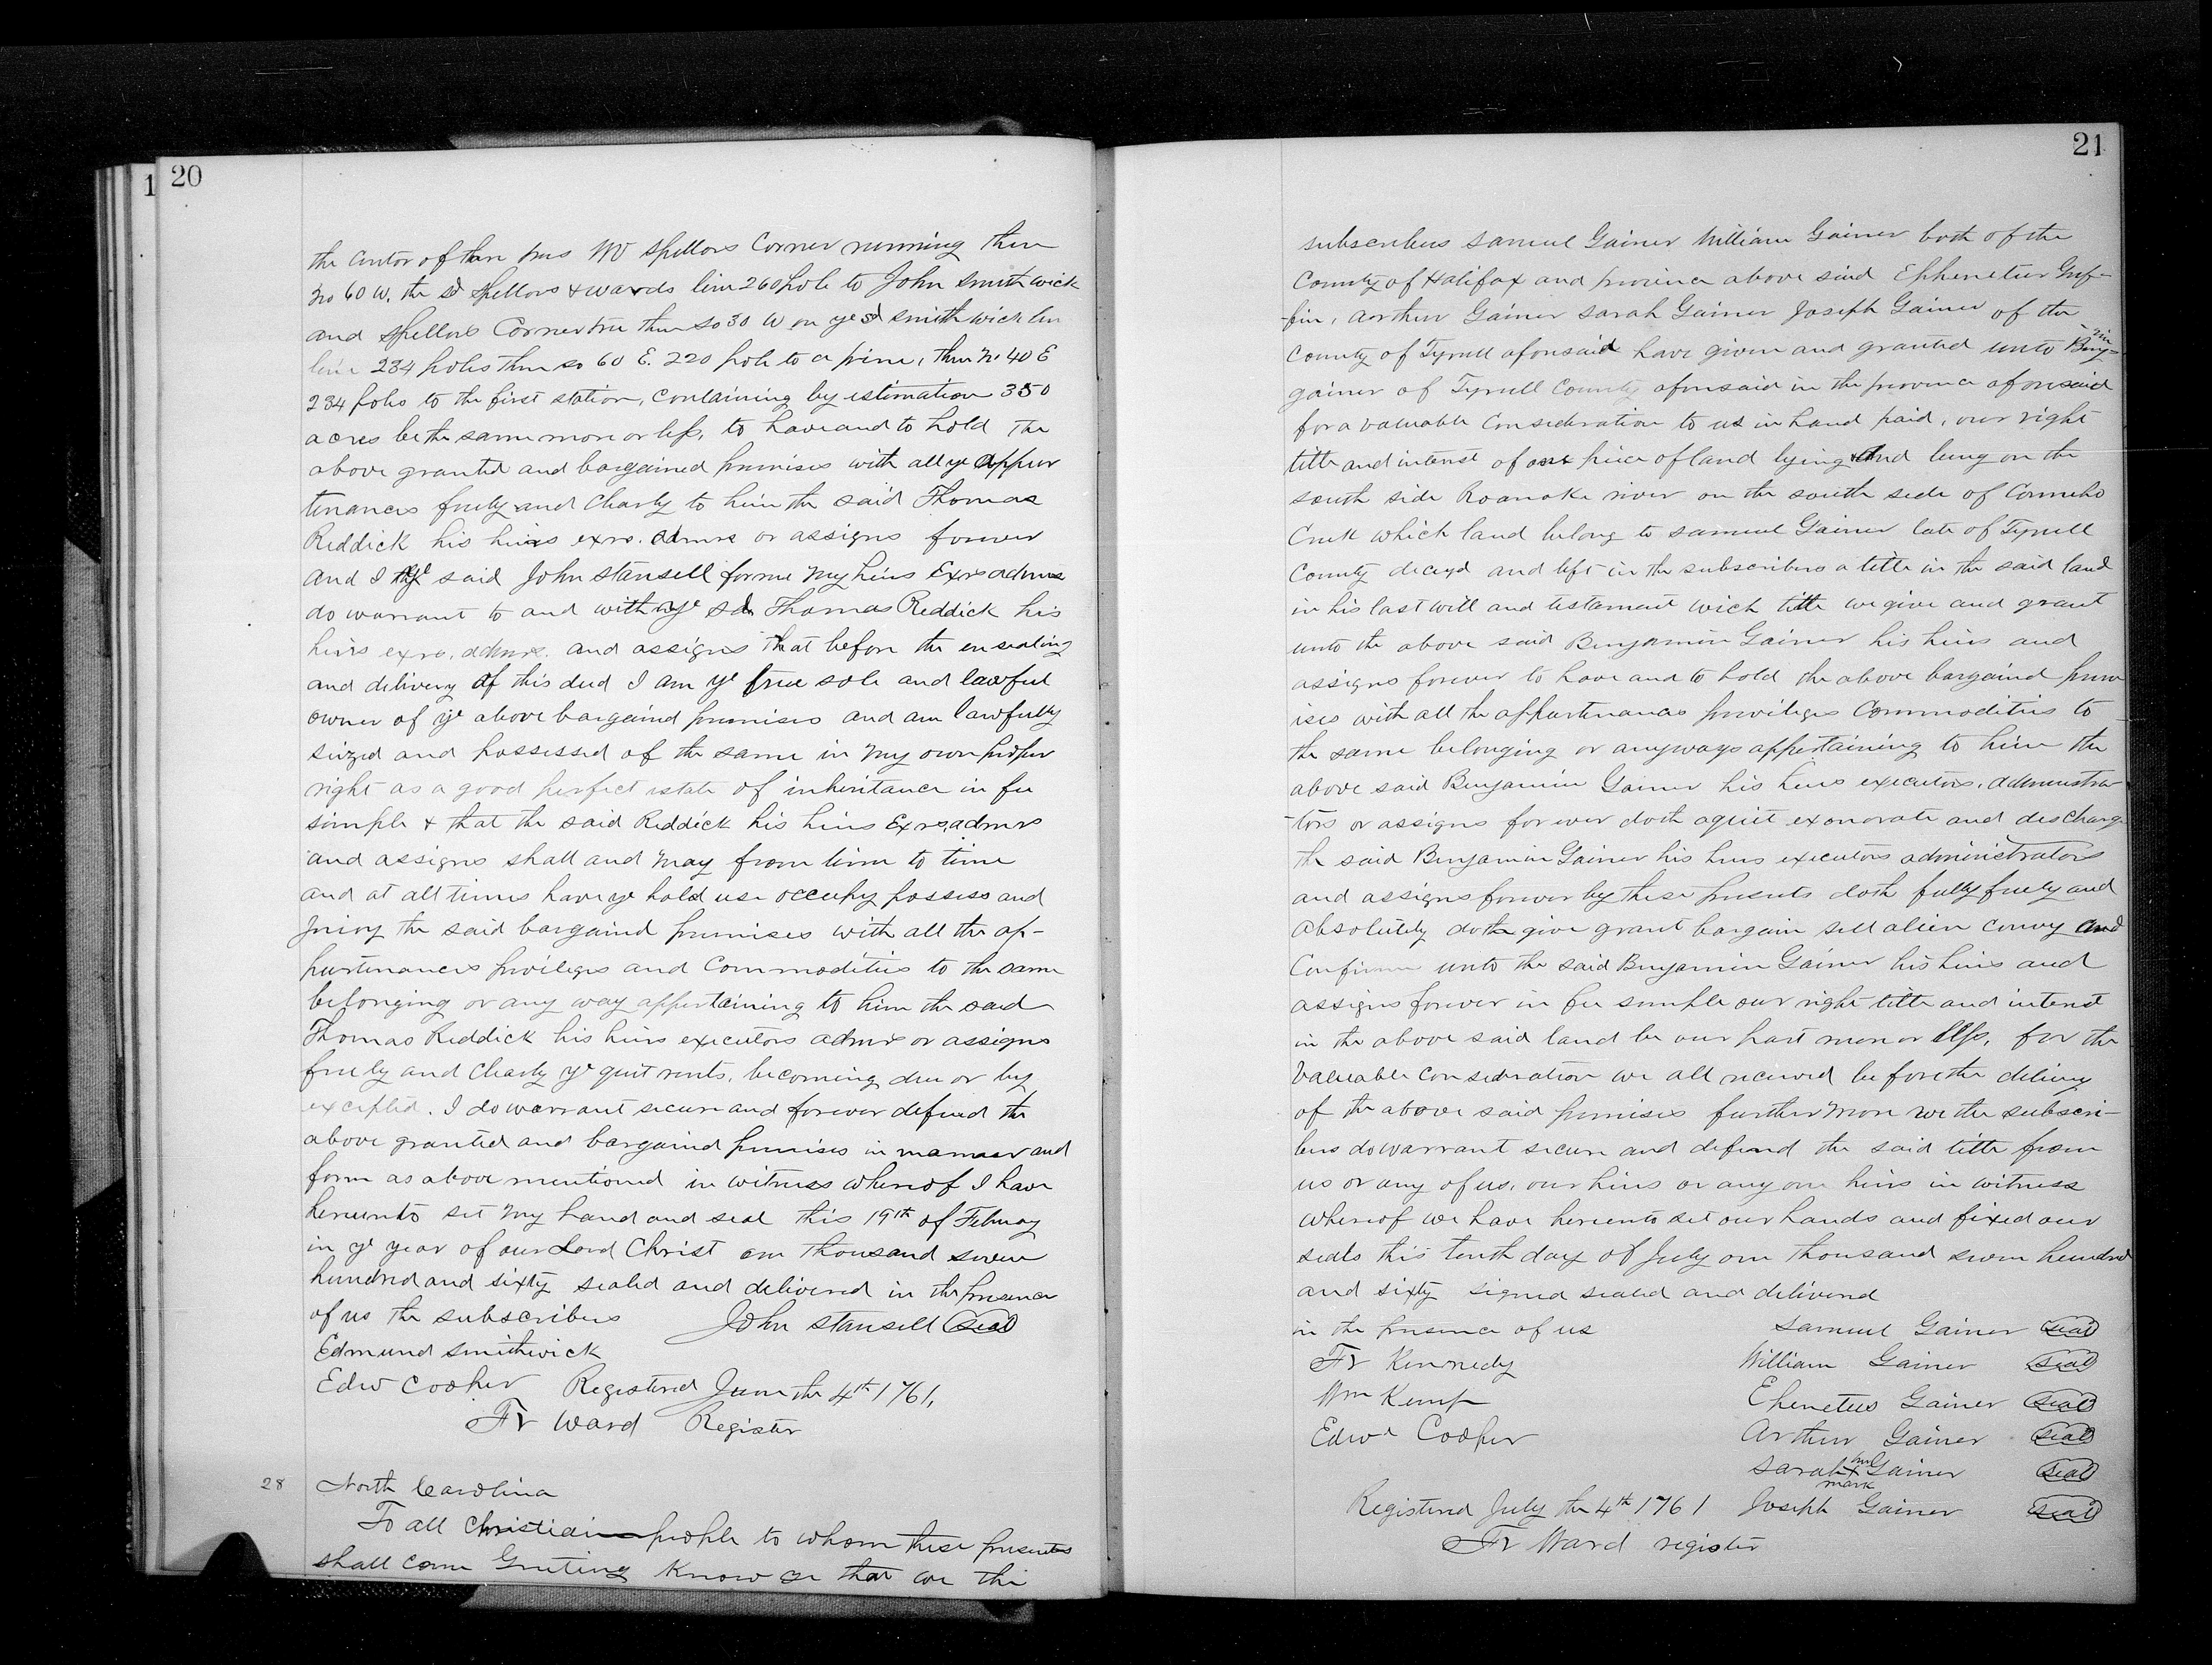 1 20
the Centor of thare pins WV Spellors Corner running then
No 60 W. the sd Spellors & wards line 260 pole to John Smithwick
and Spellors Corner tree then so 30 W on ye sd smithwick lin
line 234 poles then so 60 E. 220 pole to a pine, then No 40 E
234 poles to the first station, containing by estimation 350
acres be the same more or less, to have and to hold The
above granted and bargained premises with all ye appur
tenances freely and Clearly to him the said Thomas
Reddick his heirs exrs. admrs or assigns forever
and I ye said John Stansell for me my heirs Exrs admrs
do warrant to and with ye sd Thomas Reddick his
heirs exrs. admrs. and assigns that before the ensealing
and delivery of this deed I am ye true sole and lawful
owner of ye above bargaind premises and am lawfully
seized and possessed of the same in my own proper
right as a good perfect estate of inheritance in fee
simple & that the said Reddick his heirs Exrs, admrs
and assigns shall and may from time to time
and at all times have ye hold use occupy possess and
Injoy the said bargaind premises with all the ap-
purtenances privileges and Commodities to the same
belonging or any way appertaining to him the said
Thomas Reddick his heirs executors admrs or assigns
freely and Clearly ye quit rents, becoming due or by
excepted. I do warrant secure and forever defend the
above granted and bargaind premises in manner and
form as above mentioned in witness whereof I have
hereunto set my hand and seal this 19th of Febuay
in ye year of our Lord Christ one thousand seven
hundred and sixty sealed and delivered in the presence
of us the subscribers John Stansell seal
Edmund Smithwick
Edwd Cooper Registered June the 4th 1761,
Fr Ward Register
28 North Carolina
To all Christian people to whom these presents
shall come Greeting Know ye that we the
21
subscribers Samuel Gainer William Gainer both of the
County of Halifax and province above said Ephenetus Grif-
-fin, Arthur Gainer Sarah Gainer Joseph Gainer of the
County of Tyrull aforesaid have given and granted unto Benj-min
gainer of Tyrull County aforesaid in the province aforesaid
for a valuable Consideration to us in hand paid, our right
title and interest of one piece of land lying and being on the
south side Roanoke river on the south side of Conneho
Creek which land belong to Samuel Gainer late of Tyrull
County decesd and left in the subscribers a title in the said land
in his last will and testament wich title we give and grant
unto the above said Benjamin Gainer his heirs and
assigns forever to have and to hold the above bargaind prem
ises with all the appurtenances privileges Commodities to
the same belonging or anyways appertaining to him the
above said Benjamin Gainer his heirs executors, administra-
-tors or assigns forever doth aquit exonorate and descharge
the said Benjamin Gainer his heirs executors administrators
and assigns forever by these presents doth fully freely and
absolutely doth give grant bargain sell alien convey and
Confirm unto the said Benjamin Gainer his heirs and
assigns forever in fee simple our right title and interest
in the above said land be our part more or less, for the
valuable consideration we all received before the delivery
of the above said premises further more we the subscri-
bers do warrant secure and defend the said title from
us or any of us, our heirs or any our heirs in witness
whereof we have hereunto set our hands and fixed our
seals this tenth day of July one thousand seven hundred
and sixty signed sealed and delivered
in the presence of us Samuel Gainer seal
Fr Kennedy William Gainer seal
Wm Kemp Ehenetus Gainer seal
Edwd Cooper Arthur Gainer seal
Sarah her X mark Gainer seal
Registered July the 4th 1761 Joseph Gainer seal
Fr Ward register